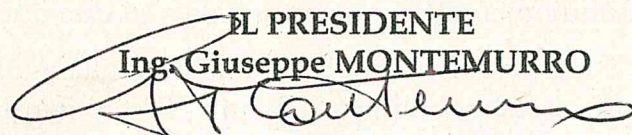 IL PRESIDENTE
Ing. Giuseppe MONTEMURRO